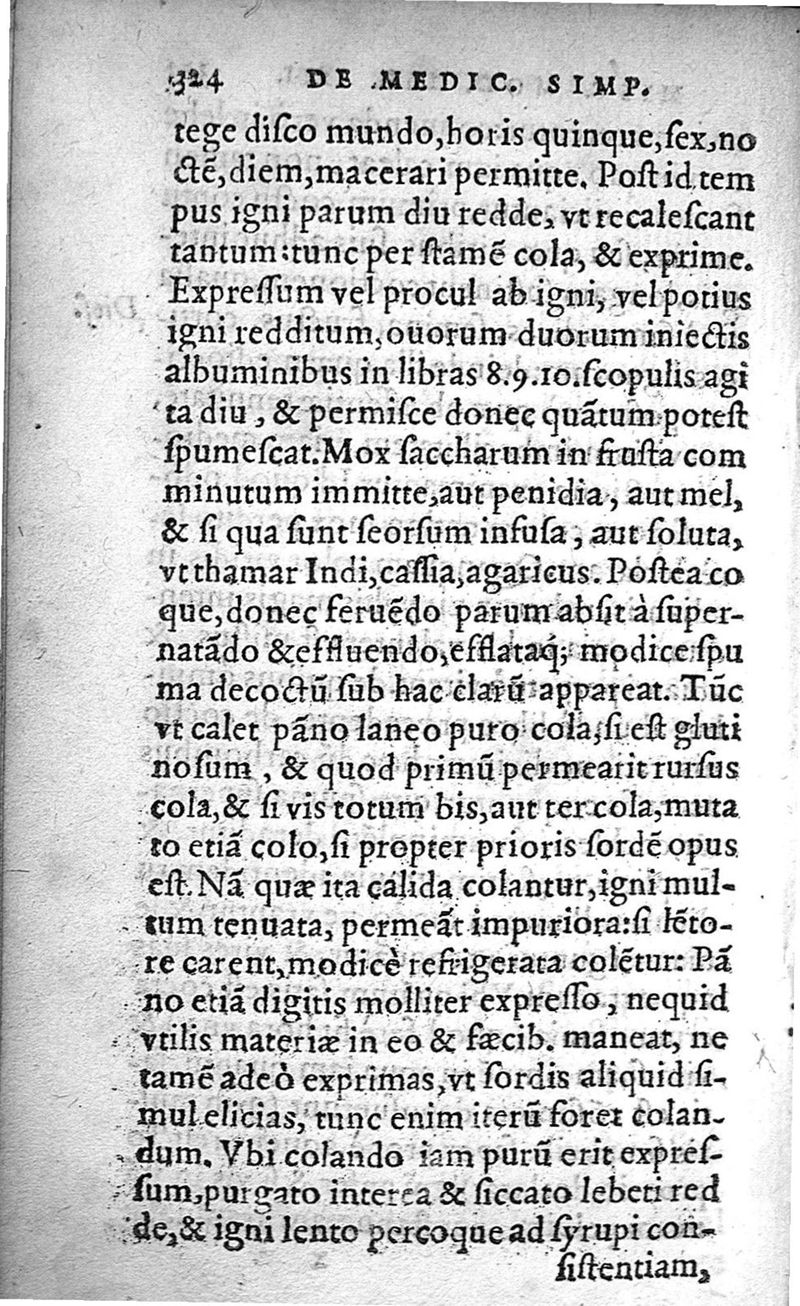 324 DE MEDIC. SIMP.
tege diſco mundo, horis quinque, ſex, no
ctẽ, diem, macerari permitte. Poſt id tem
pus igni parum diu redde, vt recaleſcant
tantum: tunc per ſtamẽ cola, & exprime.
Expreſſum vel procul ab igni, vel potius
igni redditum, ouorum duorum iniectis
albuminibus in libras 8.9.10. ſcopulis agi
ta diu, & permiſce donec quãtum poteſt
ſpumeſcat. Mox ſaccharum in fruſta com
minutum immitte, aut penidia, aut mel,
& ſi qua ſunt ſeorſum infuſa, aut ſoluta,
vt thamar Indi, caſſia, agaricus. Poſtea co
que, donec feruẽdo parum abſit à ſuper-
natãdo & effluendo, efflataq́; modice ſpu
ma decoctũ ſub hac clarũ appareat. Tũc
vt calet pãno laneo puro cola, ſi eſt gluti
noſum, & quod primũ permearit rurſus
cola, & ſi vis totum bis, aut ter cola, muta
to etiã colo, ſi propter prioris ſordẽ opus
eſt. Nã quæ ita calida colantur, igni mul-
tum tenuata, permeãt impuriora: ſi lẽto-
re carent, modicè refrigerata colẽtur: Pã
no etiã digitis molliter expreſſo, nequid
vtilis materiæ in eo & fæcib. maneat, ne
tamẽ adeò exprimas, vt ſordis aliquid ſi-
mul elicias, tunc enim iterũ foret colan-
dum. Vbi colando iam purũ erit expreſ-
ſum, purgato interea & ſiccato lebeti red
de, & igni lento percoque ad ſyrupi con-
ſiſtentiam,